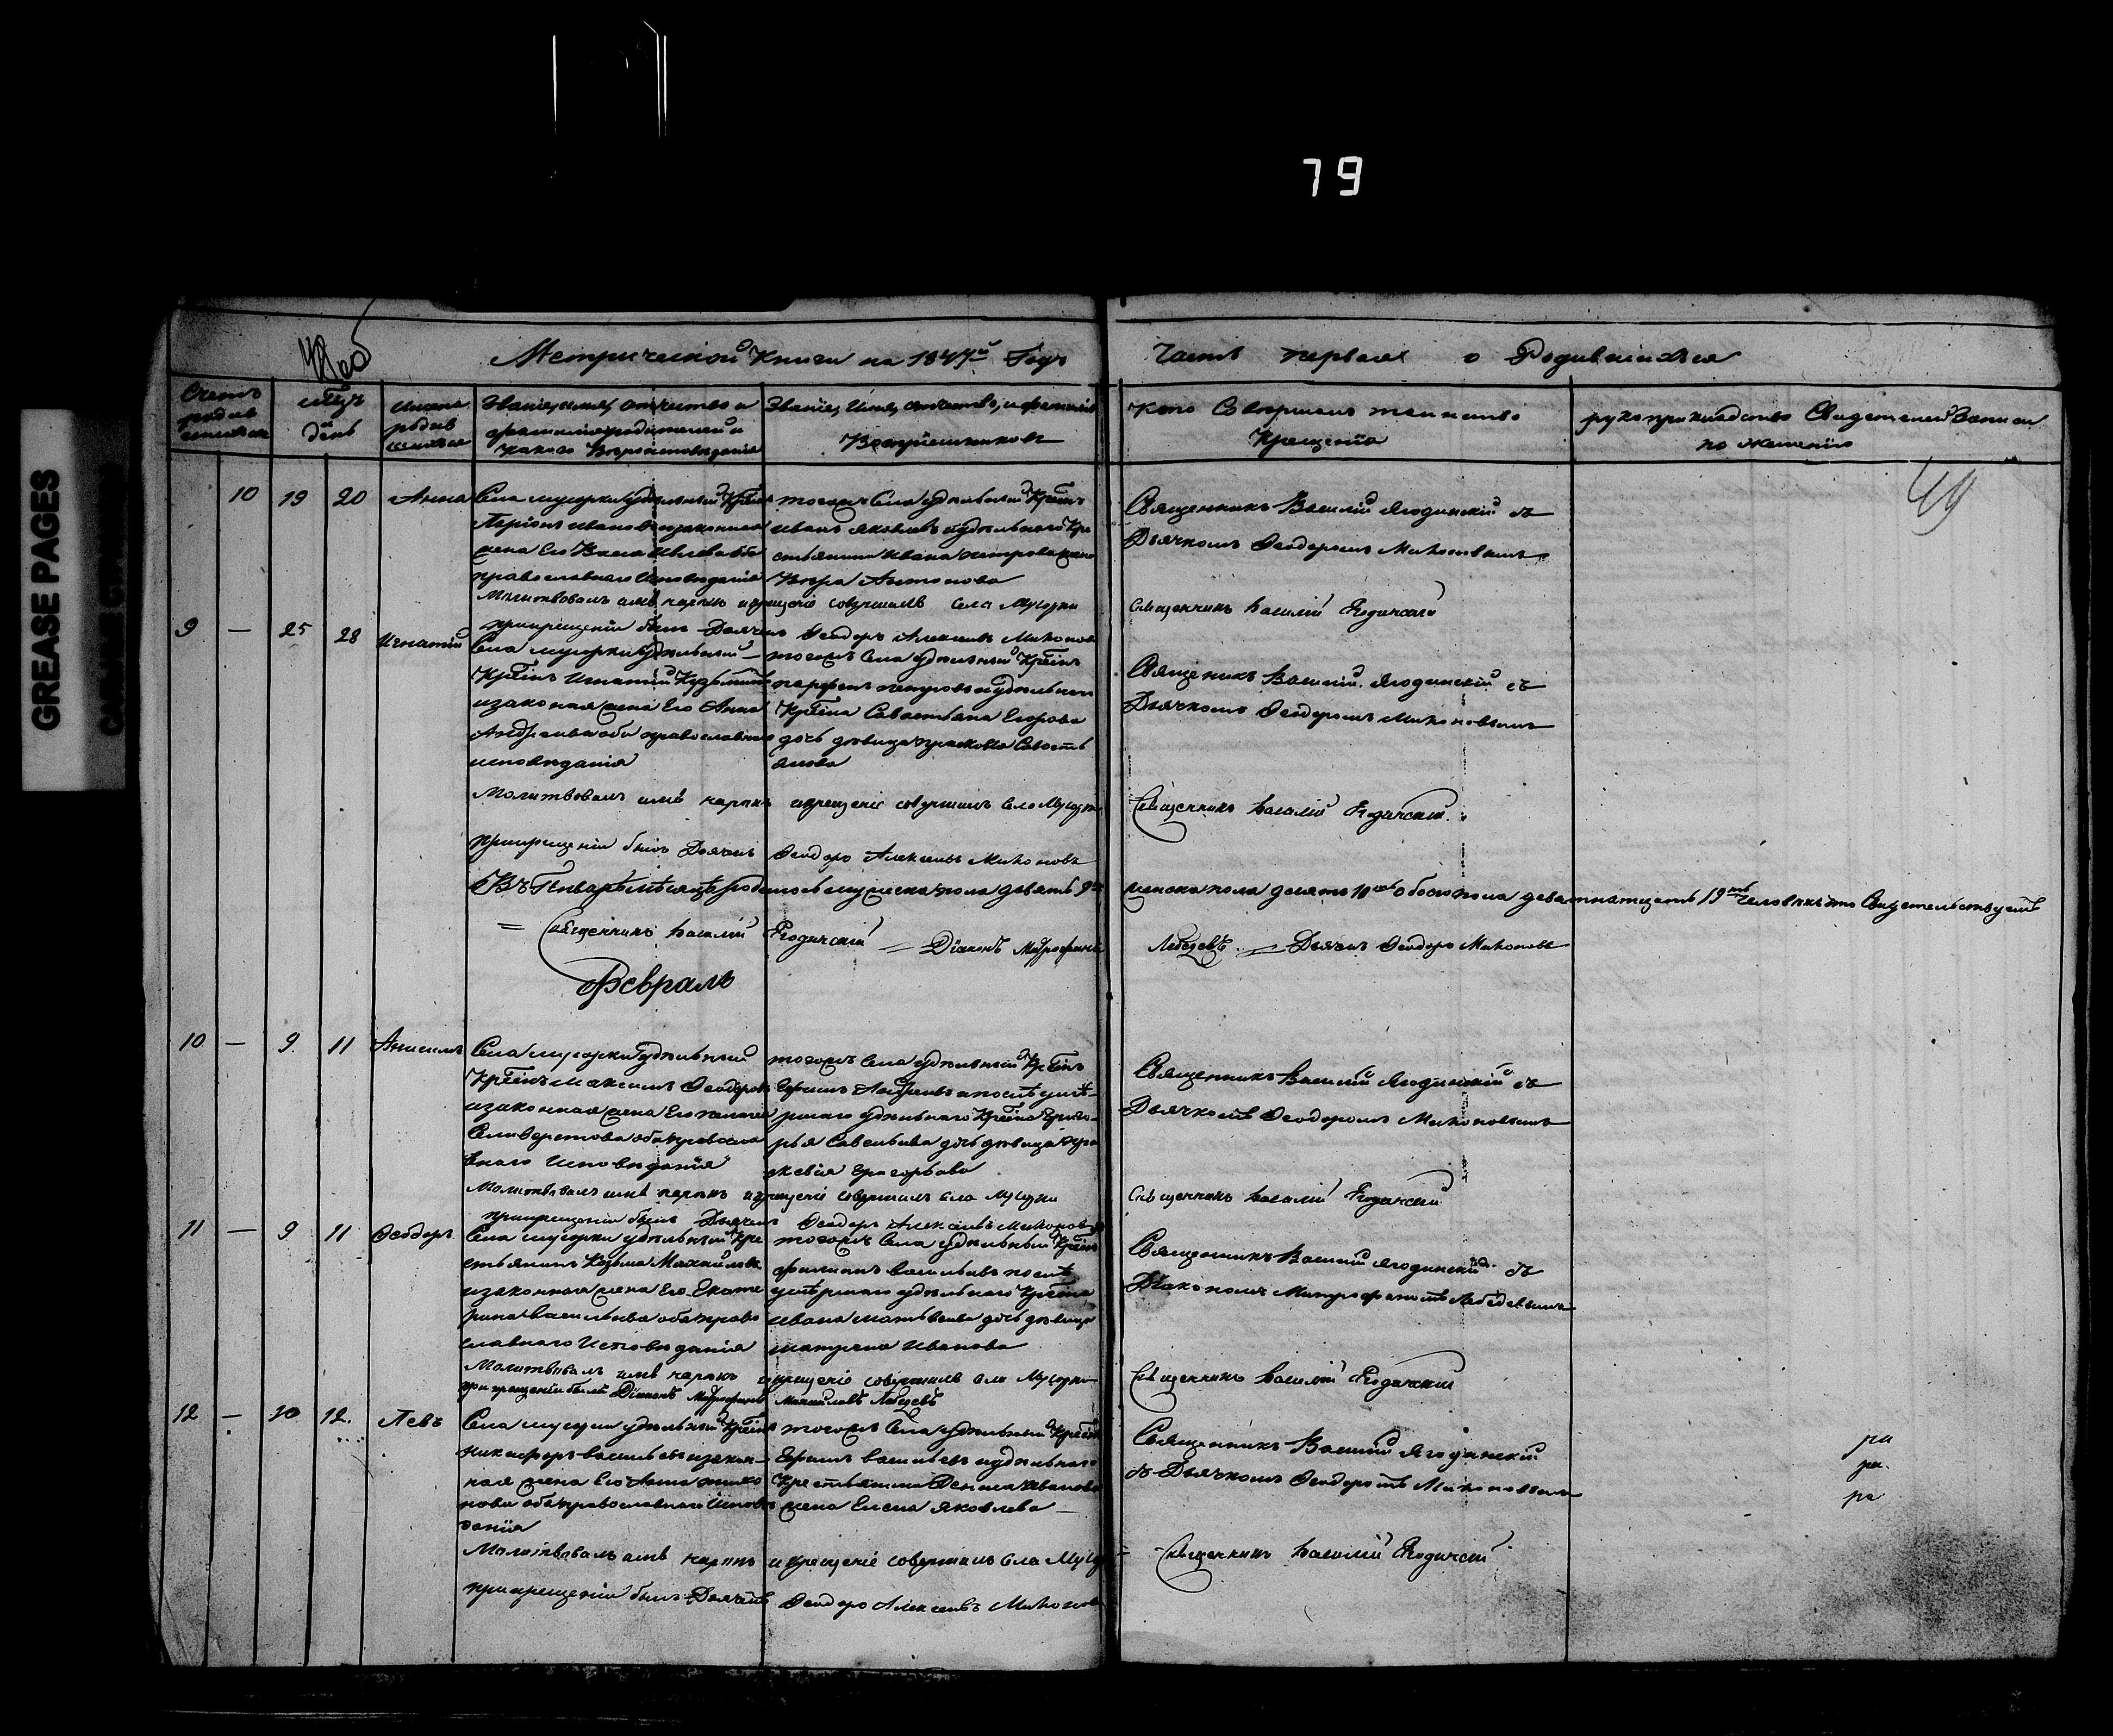 GREASE PAGES
79
Метрической Книги на 1847й Годъ
Часть первая о Родившихся
Счетъ родив
шихся
Мѣц и день
Имена родив
шихся
Званіе, имя, отчество и
фамилія родителей и
какого Вѣроисповѣданія
Званіе, Имя, отчество, и фамилія
Воспріемниковъ
Кто Совершалъ таинство
Крещенія
рукоприкладство Свидетелей Записи
по желанію
49
10 19 20 Анна
Села мусорки удѣльный
Иванов и законная
жена Его
православнаго Исповѣданія
тогожъ Села удѣльный Крѣинъ
иванъ яковлевъ и удѣльнаго Кре
стьянина Ивана петрова жена
Вѣра Антонова
Священникъ Василій Ягодинскій съ
Дьячкомъ Феодоромъ Михоновымъ
Молитвовалъ имѣ нарекъ и крещеніе совершилъ Села Мусорки
Священникъ Василій Ягодинскій
при крещеніи былъ Дьячекъ Феодоръ Алексѣевъ Михоновъ
9 — 25 28 Игнатій
Села мусорки удѣльный
Крѣинъ Игнатій Кузьминъ
и законная жена Его Анна
Андреева оба православнаго
исповѣданія
тогожъ Села удѣльный Крѣинъ
парфенъ петровъ и удѣльнаго
Крѣина Савастьяна Егорова
дочь дѣвица прасковья Савость
янова
Священникъ Василій Ягодинскій съ
Дьячкомъ Феодоромъ Михоновымъ
Молитвовалъ имѣ нарекъ и крещеніе совершилъ Села Мусорки
Священникъ Василій Ягодинскій
при крещеніи былъ Дьячекъ Феодоръ Алексѣевъ Михоновъ
Въ Генварѣ мѣсяцѣ родилось мужеска пола девять 9ть
женска пола десять 10ть обоего пола девятнатцать 19ть человѣкъ что Свидетельствуемъ
Священникъ Василій Ягодинскій — Діаконъ Митрофанъ
Лебедевъ — Дьячекъ Феодоръ Михоновъ
Февраль
10 — 9 11 Анисимъ
Села мусорки удѣльный
Крѣинъ Максимъ Феодоровъ
и законная жена Его
Селиверстова оба православ
наго Исповѣданія
тогожъ Села удѣльный Крѣинъ
Андреевъ и послѣ умѣ
ршаго удѣльнаго Крѣина Григо
рья Савельева дочь дѣвица пра
сковія Григорьева
Священникъ Василій Ягодинскій съ
Дьячкомъ Феодоромъ Михоновымъ
Молитвовалъ имѣ нарекъ и крещеніе совершилъ Села Мусорки
Священникъ Василій Ягодинскій
при крещеніи былъ Дьячекъ Феодоръ Алексѣевъ Михоновъ
11 — 9 11 Феодоръ
Села мусорки удѣльный Кре
стьянинъ Козьма Михайловъ
и законная жена Его Екате
рина Васильева оба право
славнаго Исповѣданія
тогожъ Села удѣльный Крѣинъ
филипъ васильевъ послѣ
умѣршаго удѣльнаго Крѣина
ивана матвѣева дочь дѣвица
матрена Иванова
Священникъ Василій Ягодинскій съ
Діакономъ Митрофаномъ Лебедевымъ
Молитвовалъ имѣ нарекъ и крещеніе совершилъ Села Мусорки
Священникъ Василій Ягодинскій
при крещеніи былъ Діаконъ Митрофанъ Михайловъ Лебедевъ
12 — 10 12. Левъ
Села мусорки удѣльный Крѣинъ
никифоръ васильевъ и закон
ная жена Его Анна
нова оба православнаго Исповѣ
данія
тогожъ Села удѣльный Крѣинъ
васильевъ и удѣльнаго
Крестьянина Дениса Иванова
жена Елена яковлева
Священникъ Василій Ягодинскій
съ Дьячкомъ Феодоромъ Михоновымъ
ра
ра
ра
Молитвовалъ имѣ нарекъ и крещеніе совершилъ Села Мусор
Священникъ Василій Ягодинскій
при крещеніи былъ Дьячекъ Феодоръ Алексѣевъ Михоновъ